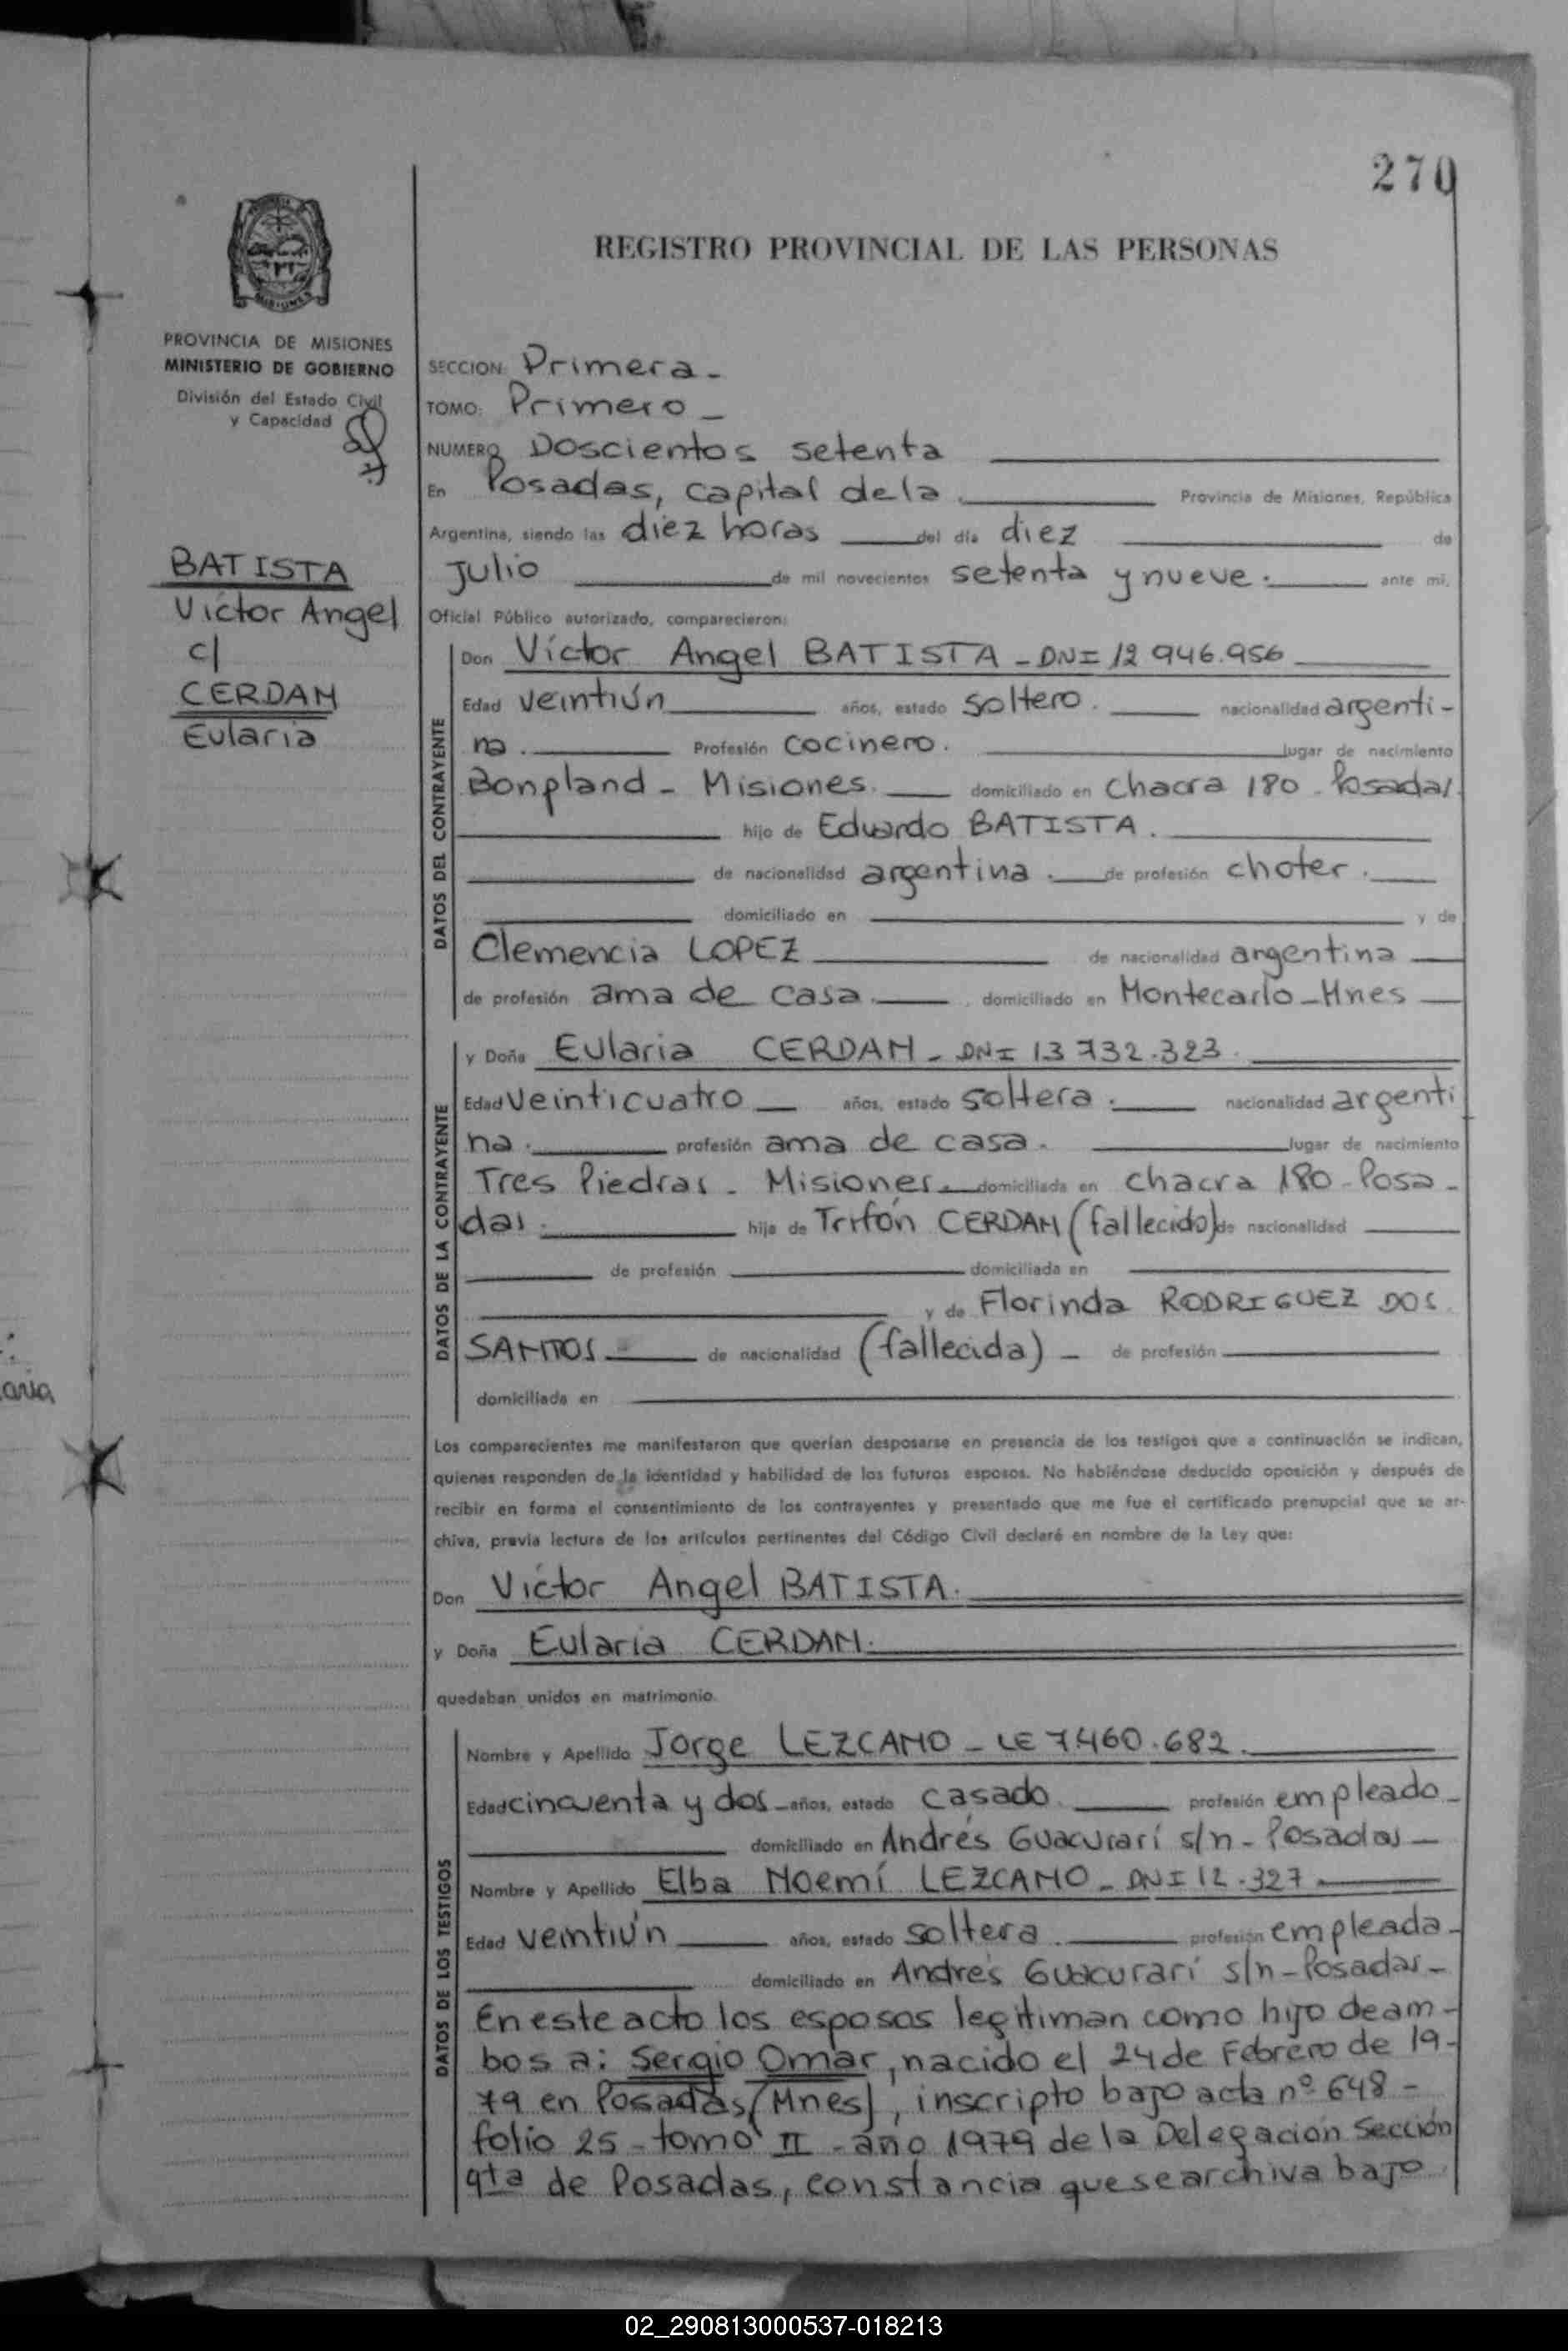 270
REGISTRO PROVINCIAL DE LAS PERSONAS
PROVINCIA DE MISIONES
MINISTERIO DE GOBIERNO
División del Estado Civil
y Capacidad
BATISTA
Víctor Angel
c/
CERDAN
Eularia
SECCION: Primera -
TOMO: Primero -
NUMERO Doscientos setenta
En Posadas, capital de la Provincia de Misiones, República
Argentina, siendo las diez horas del día diez de
Julio de mil novecientos setenta y nueve. ante mi,
Oficial Público autorizado, comparecieron:
DATOS DEL CONTRAYENTE
Don Víctor Angel BATISTA - DNI 12 946.956
Edad veintiún años, estado soltero. nacionalidad argenti-
na. Profesión cocinero. lugar de nacimiento
Bonpland - Misiones. domiciliado en chacra 180 - Posadas.
hijo de Eduardo BATISTA.
de nacionalidad argentina. de profesión chofer.
domiciliado en y de
Clemencia LOPEZ de nacionalidad argentina
de profesión ama de casa. domiciliado en Montecarlo - Mnes
DATOS DE LA CONTRAYENTE
y Doña Eularia CERDAN - DNI 13 732.323.
Edad veinticuatro años, estado soltera. nacionalidad argenti
na. profesión ama de casa. lugar de nacimiento
Tres Piedras - Misiones. domiciliada en chacra 180 - Posa-
das. hija de Trifón CERDAN (fallecido) de nacionalidad
de profesión domiciliada en
y de Florinda RODRIGUEZ DOS
SANTOS de nacionalidad (fallecida) - de profesión
domiciliada en
Los comparecientes me manifestaron que querían desposarse en presencia de los testigos que a continuación se indican,
quienes responden de la identidad y habilidad de los futuros esposos. No habiéndose deducido oposición y después de
recibir en forma el consentimiento de los contrayentes y presentado que me fue el certificado prenupcial que se ar-
chiva, previa lectura de los artículos pertinentes del Código Civil declaré en nombre de la Ley que:
Don Víctor Angel BATISTA.
y Doña Eularia CERDAN.
quedaban unidos en matrimonio.
DATOS DE LOS TESTIGOS
Nombre y Apellido Jorge LEZCANO - LE 7.460.682.
Edad cincuenta y dos años, estado casado. profesión empleado -
domiciliado en Andrés Guacurarí s/n - Posadas -
Nombre y Apellido Elba Noemí LEZCANO - DNI 12.327
Edad veintiún años, estado soltera. profesión empleada -
domiciliado en Andrés Guacurarí s/n - Posadas -
En este acto los esposos legitiman como hijo de am-
bos a: Sergio Omar, nacido el 24 de Febrero de 19-
79 en Posadas (Mnes), inscripto bajo acta nº 648 -
folio 25 - tomo II - año 1979 de la Delegación Sección
4ta de Posadas, constancia que se archiva bajo
02_290813000537-018213